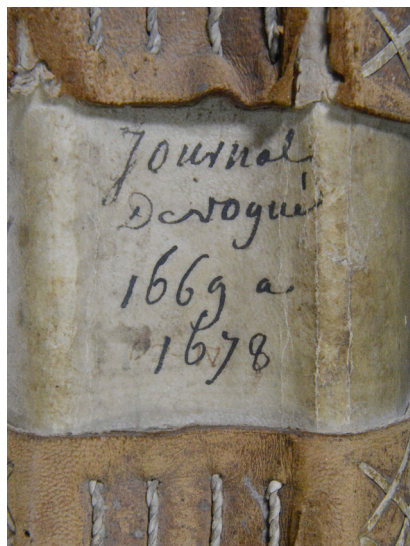 Journal
Devogué
1669 a
1678